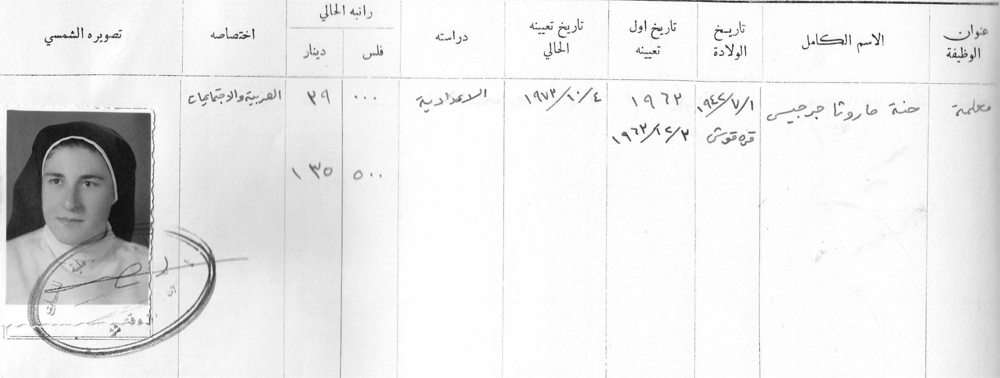 عنوان الوظيفة
الاسم الكامل
تاريخ الولادة
تاريخ اول تعيينه
تاريخ تعيينه الحالي
دراسته
راتبه الحالي
فلس
دينار
اختصاصه
تصويره الشمسي
معلمة
حنة ماروثا جرجيس
١٩٤٢/٧/١
قره قوش
١٩٦٢
١٩٦٢/١٢/٣
١٩٧٣/١٠/٤
الاعدادية
٠٠٠
٣٩
العربية والاجتماعيات
٥٠٠
١٣٥